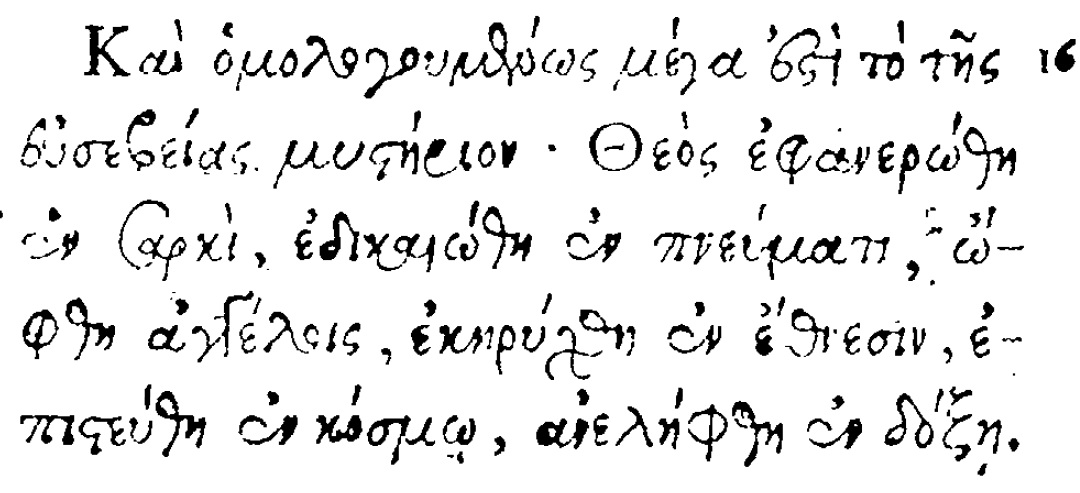 Καὶ ὁμολογουμένως μέγα ἐστὶ τὸ τῆς 16
εὐσεβείας μυστήριον · Θεὸς ἐφανερώθη
ἐν σαρκὶ, ἐδικαιώθη ἐν πνεύματι, ὤ-
φθη ἀγγέλοις, ἐκηρύχθη ἐν ἔθνεσιν, ἐ-
πιστεύθη ἐν κόσμῳ, ἀνελήφθη ἐν δόξῃ.